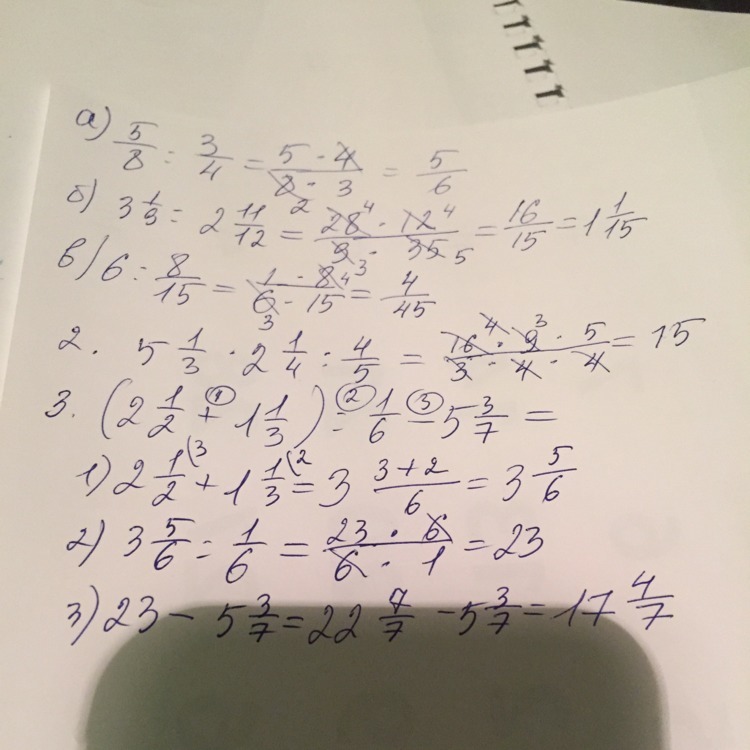 а) 5/8 : 3/4 = 5 · 4 / 8 · 3 = 5/6
2
б) 3 1/3 : 2 11/12 = 28 4 · 12 4 / 3 · 35 5 = 16/15 = 1 1/15
в) 6 : 8/15 = 1 · 8 4 / 6 3 · 15 3 = 4/45
2. 5 1/3 · 2 1/4 : 4/5 = 16 4 · 9 3 · 5 / 3 · 4 · 4 = 15
3. (2 1/2 + 1 1/3) : 1/6 − 5 3/7 =
1) 2 1/2 (3 + 1 1/3 (2 = 3 3+2/6 = 3 5/6
2) 3 5/6 : 1/6 = 23 · 6 / 6 · 1 = 23
3) 23 − 5 3/7 = 22 7/7 − 5 3/7 = 17 4/7